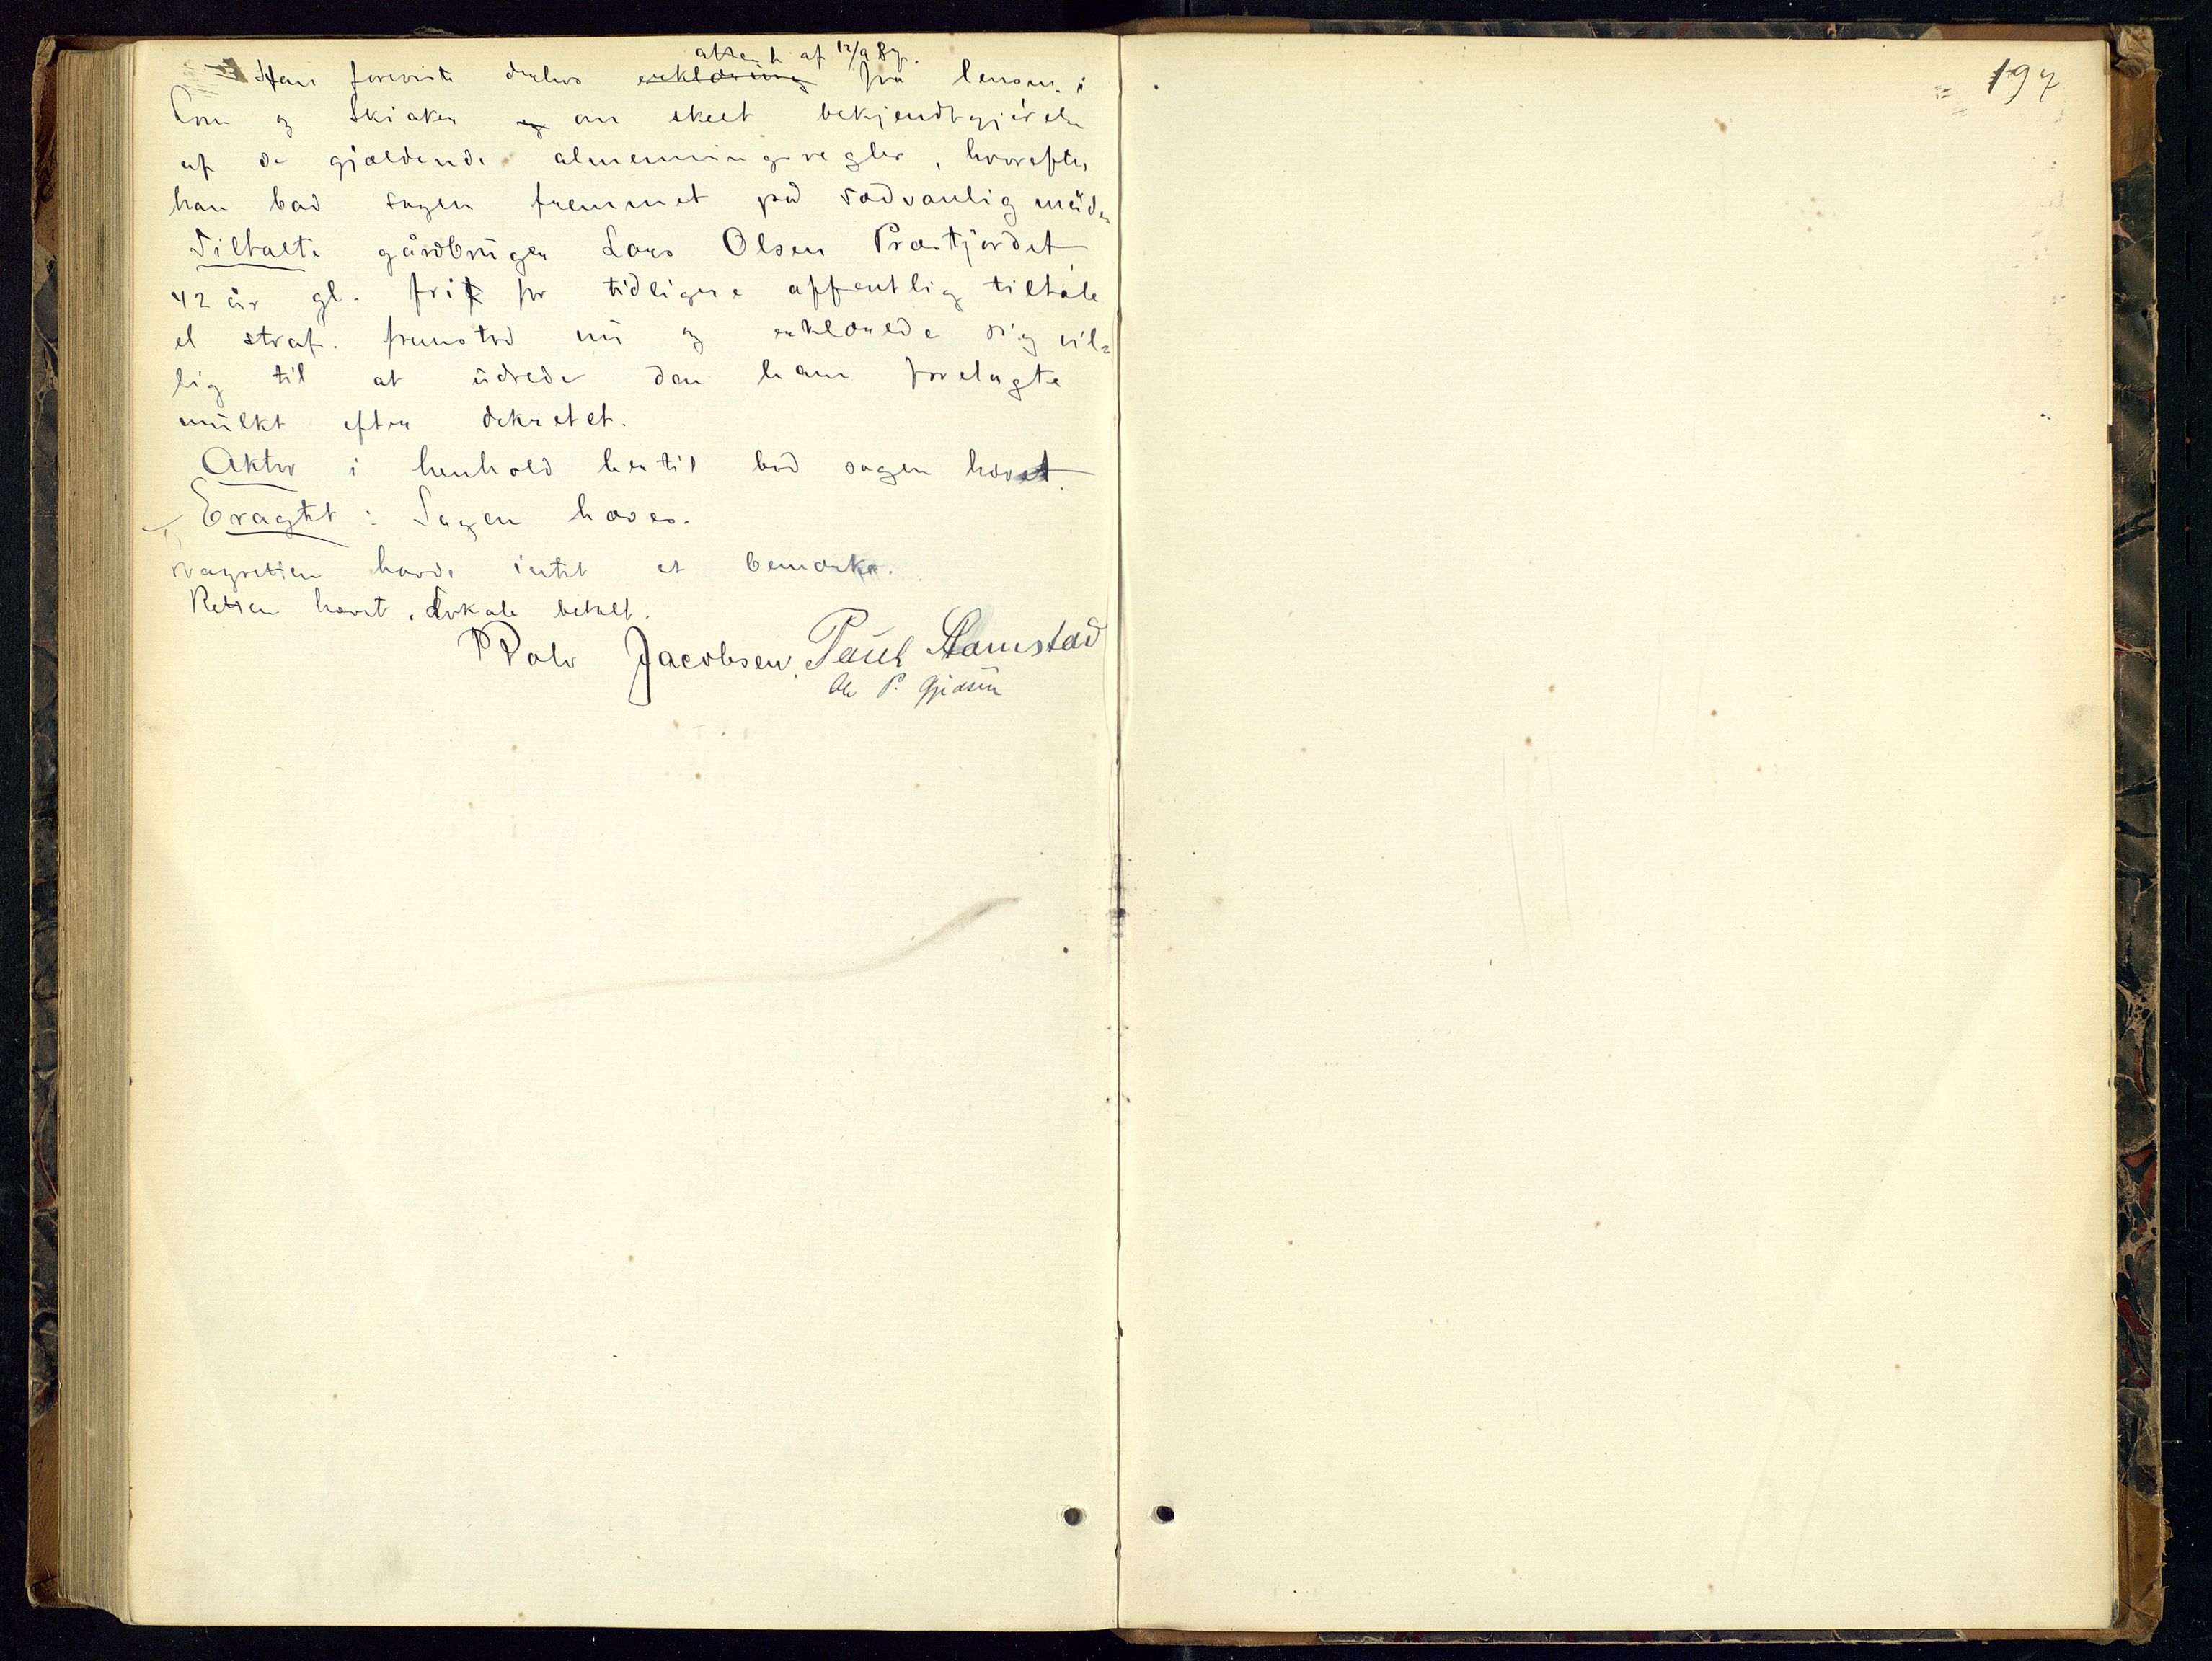 attest af 12/9 89.
Han foreviste derhos erklæring fra lensm. i
Lom og Skiaker og om skeet bekjendtgjørelse
af de gjældende almenningsregler, hvorefter
han bad sagen fremmet på sædvanlig måde
Tiltalte gårdbruger Lars Olsen Præstjordet
42 år gl. frit for tidligere offentlig tiltale
el straf. fremstod nu og erklærede sig vil=
lig til at udrede den ham forelagte
mulkt efter dekretet.
Aktor i henhold hertil bad sagen hævet.
Eragtet: Sagen hæves.
Lagretten havde intet at bemærke.
Retten hævet. Lokale betalt.
Jacobsen. Paul Stamstad
Ole P. Gjæsen
197